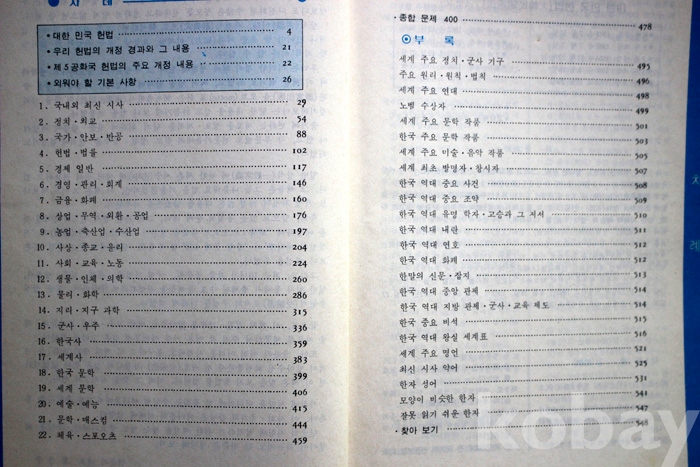 차 례
• 대한 민국 헌법 4
• 우리 헌법의 개정 경과와 그 내용 21
• 제5공화국 헌법의 주요 개정 내용 22
• 외워야 할 기본 사항 26
1. 국내외 최신 시사 29
2. 정치·외교 54
3. 국가·안보·반공 88
4. 헌법·법률 102
5. 경제 일반 117
6. 경영·관리·회계 146
7. 금융·화폐 160
8. 상업·무역·외환·공업 176
9. 농업·축산업·수산업 197
10. 사상·종교·윤리 204
11. 사회·교육·노동 224
12. 생물·인체·의학 260
13. 물리·화학 286
14. 지리·지구 과학 315
15. 군사·우주 336
16. 한국사 359
17. 세계사 383
18. 한국 문학 399
19. 세계 문학 406
20. 예술·예능 415
21. 문학·매스컴 444
22. 체육·스포오츠 459
• 종합 문제 400 478
◎부 록
세계 주요 정치·군사 기구 495
주요 원리·원칙·법칙 496
세계 주요 연대 498
노벨 수상자 499
세계 주요 문학 작품 501
한국 주요 문학 작품 503
세계 주요 미술·음악 작품 505
세계 최초 발명자·창시자 507
한국 역대 중요 사건 508
한국 역대 중요 조약 509
한국 역대 유명 학자·고승과 그 저서 510
한국 역대 내란 511
한국 역대 연호 512
한국 역대 화폐 512
한말의 신문·잡지 513
한국 역대 중앙 관제 514
한국 역대 지방 관제·군사·교육 제도 514
한국 중요 비석 515
한국 역대 왕실 세계표 516
세계 주요 명언 521
최신 시사 약어 525
한자 성어 531
모양이 비슷한 한자 541
잘못 읽기 쉬운 한자 547
• 찾아 보기 548
차
례
kobay